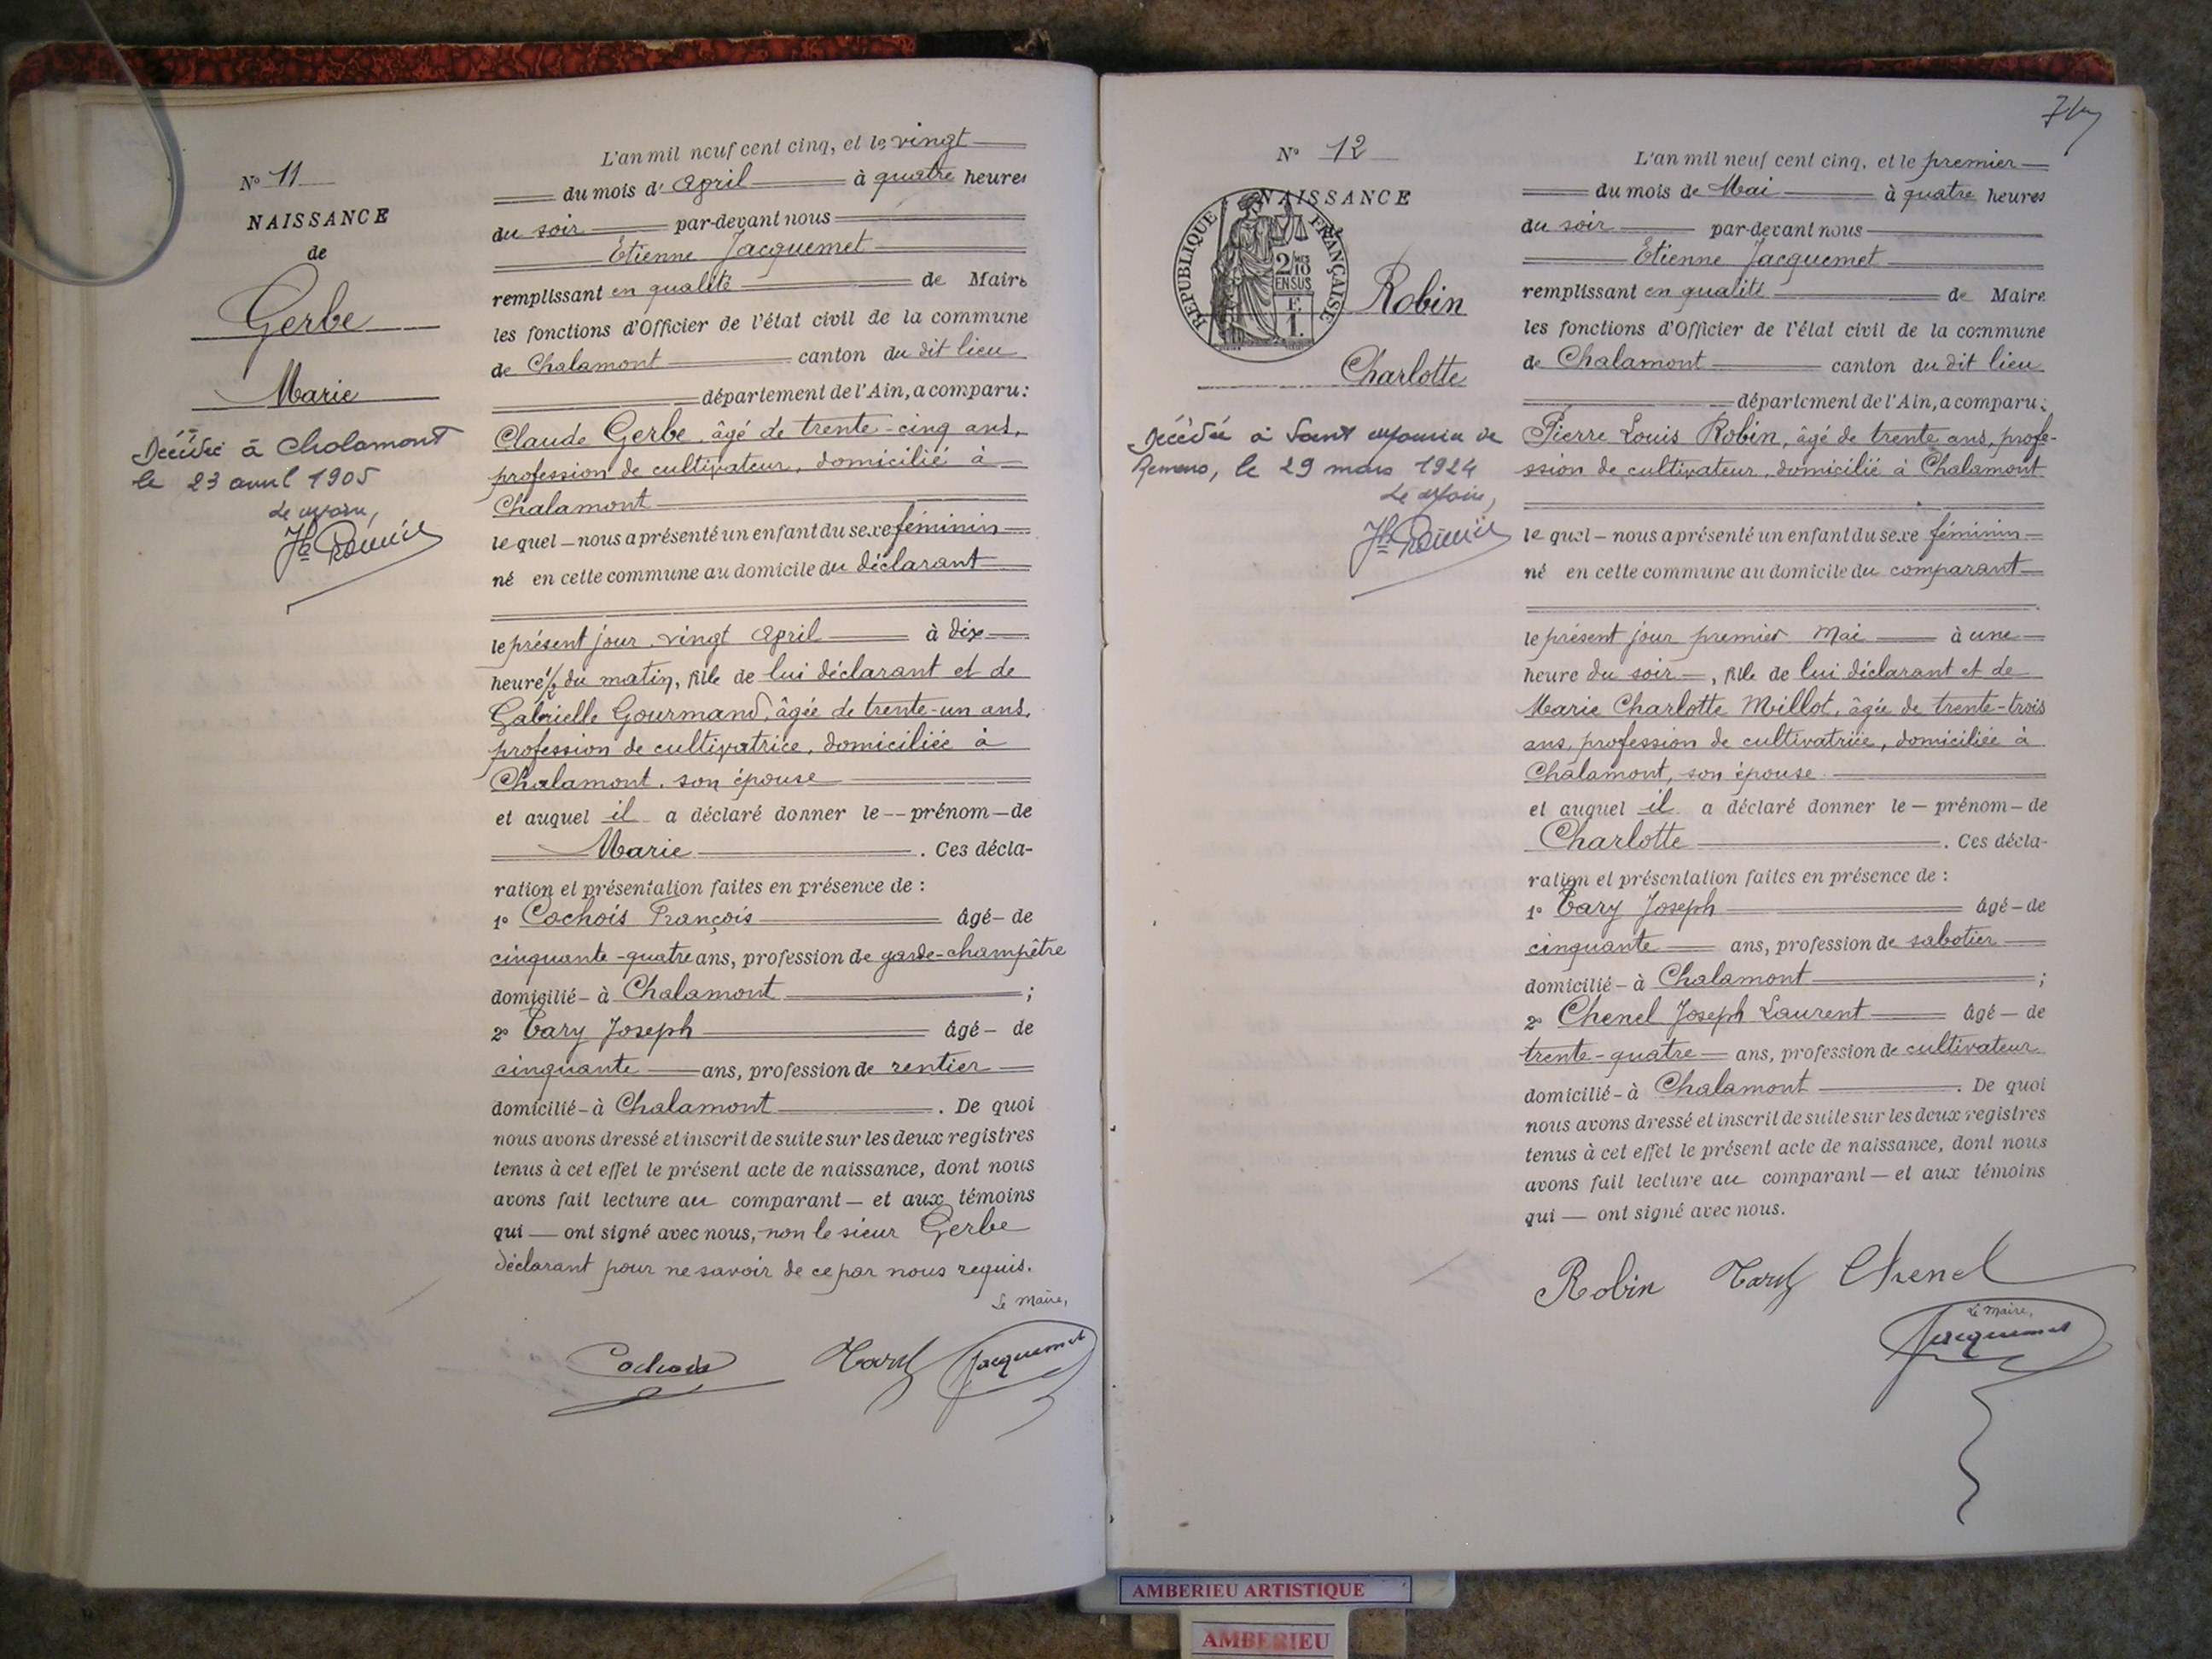 N° 11
NAISSANCE
de
Gerbe
Marie
Décédée à Chalamont
le 23 avril 1905
Le Maire,
L'an mil neuf cent cinq, et le vingt
du mois d' April à quatre heures
du soir par-devant nous
Etienne Jacquemet
remplissant en qualité de Maire
les fonctions d'Officier de l'état civil de la commune
de Chalamont canton du dit lieu
département de l'Ain, a comparu:
Claude Gerbe, âgé de trente-cinq ans,
profession de cultivateur, domicilié à
Chalamont
le quel – nous a présenté un enfant du sexe féminin
né en cette commune au domicile du déclarant
le présent jour vingt April à dix
heure ½ du matin, fille de lui déclarant et de
Gabrielle Gourmand, âgée de trente-un ans,
profession de cultivatrice, domiciliée à
Chalamont, son épouse
et auquel il a déclaré donner le – prénom – de
Marie . Ces décla-
ration et présentation faites en présence de :
1° Cochois François âgé – de
cinquante-quatre ans, profession de garde-champêtre
domicilié – à Chalamont ;
2° Tary Joseph âgé – de
cinquante ans, profession de rentier
domicilié – à Chalamont . De quoi
nous avons dressé et inscrit de suite sur les deux registres
tenus à cet effet le présent acte de naissance, dont nous
avons fait lecture au comparant – et aux témoins
qui — ont signé avec nous, non le sieur Gerbe
déclarant pour ne savoir de ce par nous requis.
Le Maire,
Cochois Tary Jacquemet
N° 12
NAISSANCE
REPUBLIQUE FRANÇAISE
2/10 MES
EN SUS
F.
1.
Robin
Charlotte
Décédée à Saint Maurice de
Remens, le 29 mars 1924
Le Maire,
L'an mil neuf cent cinq, et le premier
du mois de Mai à quatre heures
du soir par-devant nous
Etienne Jacquemet
remplissant en qualité de Maire
les fonctions d'Officier de l'état civil de la commune
de Chalamont canton du dit lieu
département de l'Ain, a comparu:
Pierre Louis Robin, âgé de trente ans, profe-
ssion de cultivateur, domicilié à Chalamont
le quel – nous a présenté un enfant du sexe féminin
né en cette commune au domicile du comparant
le présent jour premier Mai à une
heure du soir , fille de lui déclarant et de
Marie Charlotte Millot, âgée de trente-trois
ans, profession de cultivatrice, domiciliée à
Chalamont, son épouse
et auquel il a déclaré donner le – prénom – de
Charlotte . Ces décla-
ration et présentation faites en présence de :
1° Tary Joseph âgé – de
cinquante ans, profession de sabotier
domicilié – à Chalamont ;
2° Chenel Joseph Laurent âgé – de
trente-quatre ans, profession de cultivateur
domicilié – à Chalamont . De quoi
nous avons dressé et inscrit de suite sur les deux registres
tenus à cet effet le présent acte de naissance, dont nous
avons fait lecture au comparant – et aux témoins
qui — ont signé avec nous.
Robin Tary Chenel
Le Maire,
Jacquemet
AMBERIEU ARTISTIQUE
AMBERIEU